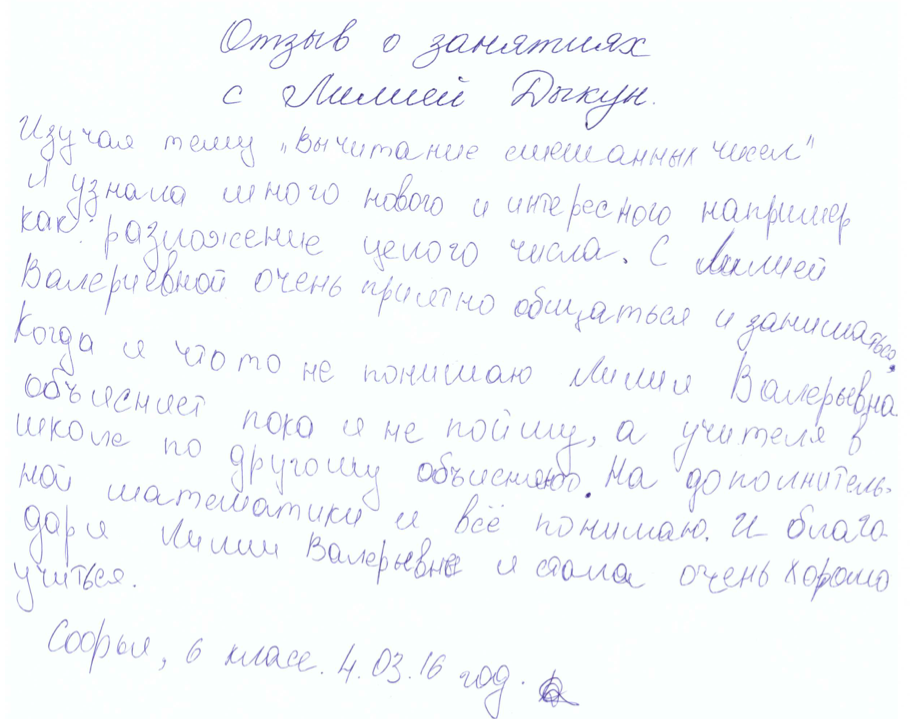 Отзыв о занятиях
с Лилией Дыкун.
Изучая тему „Вычитание смешанных чисел"
я узнала много нового и интересного например
как: разложение целого числа. С Лилией
Валериевной очень приятно общаться и заниматься.
Когда я что то не понимаю Лилия Валерьевна
объясняет пока я не пойму, а учителя в
школе по другому объясняют. На дополнитель-
ной математики я всё понимаю. И благо
даря Лилии Валерьевне я стала очень хорошо
учиться.
Софья, 6 класс. 4.03.16 год.